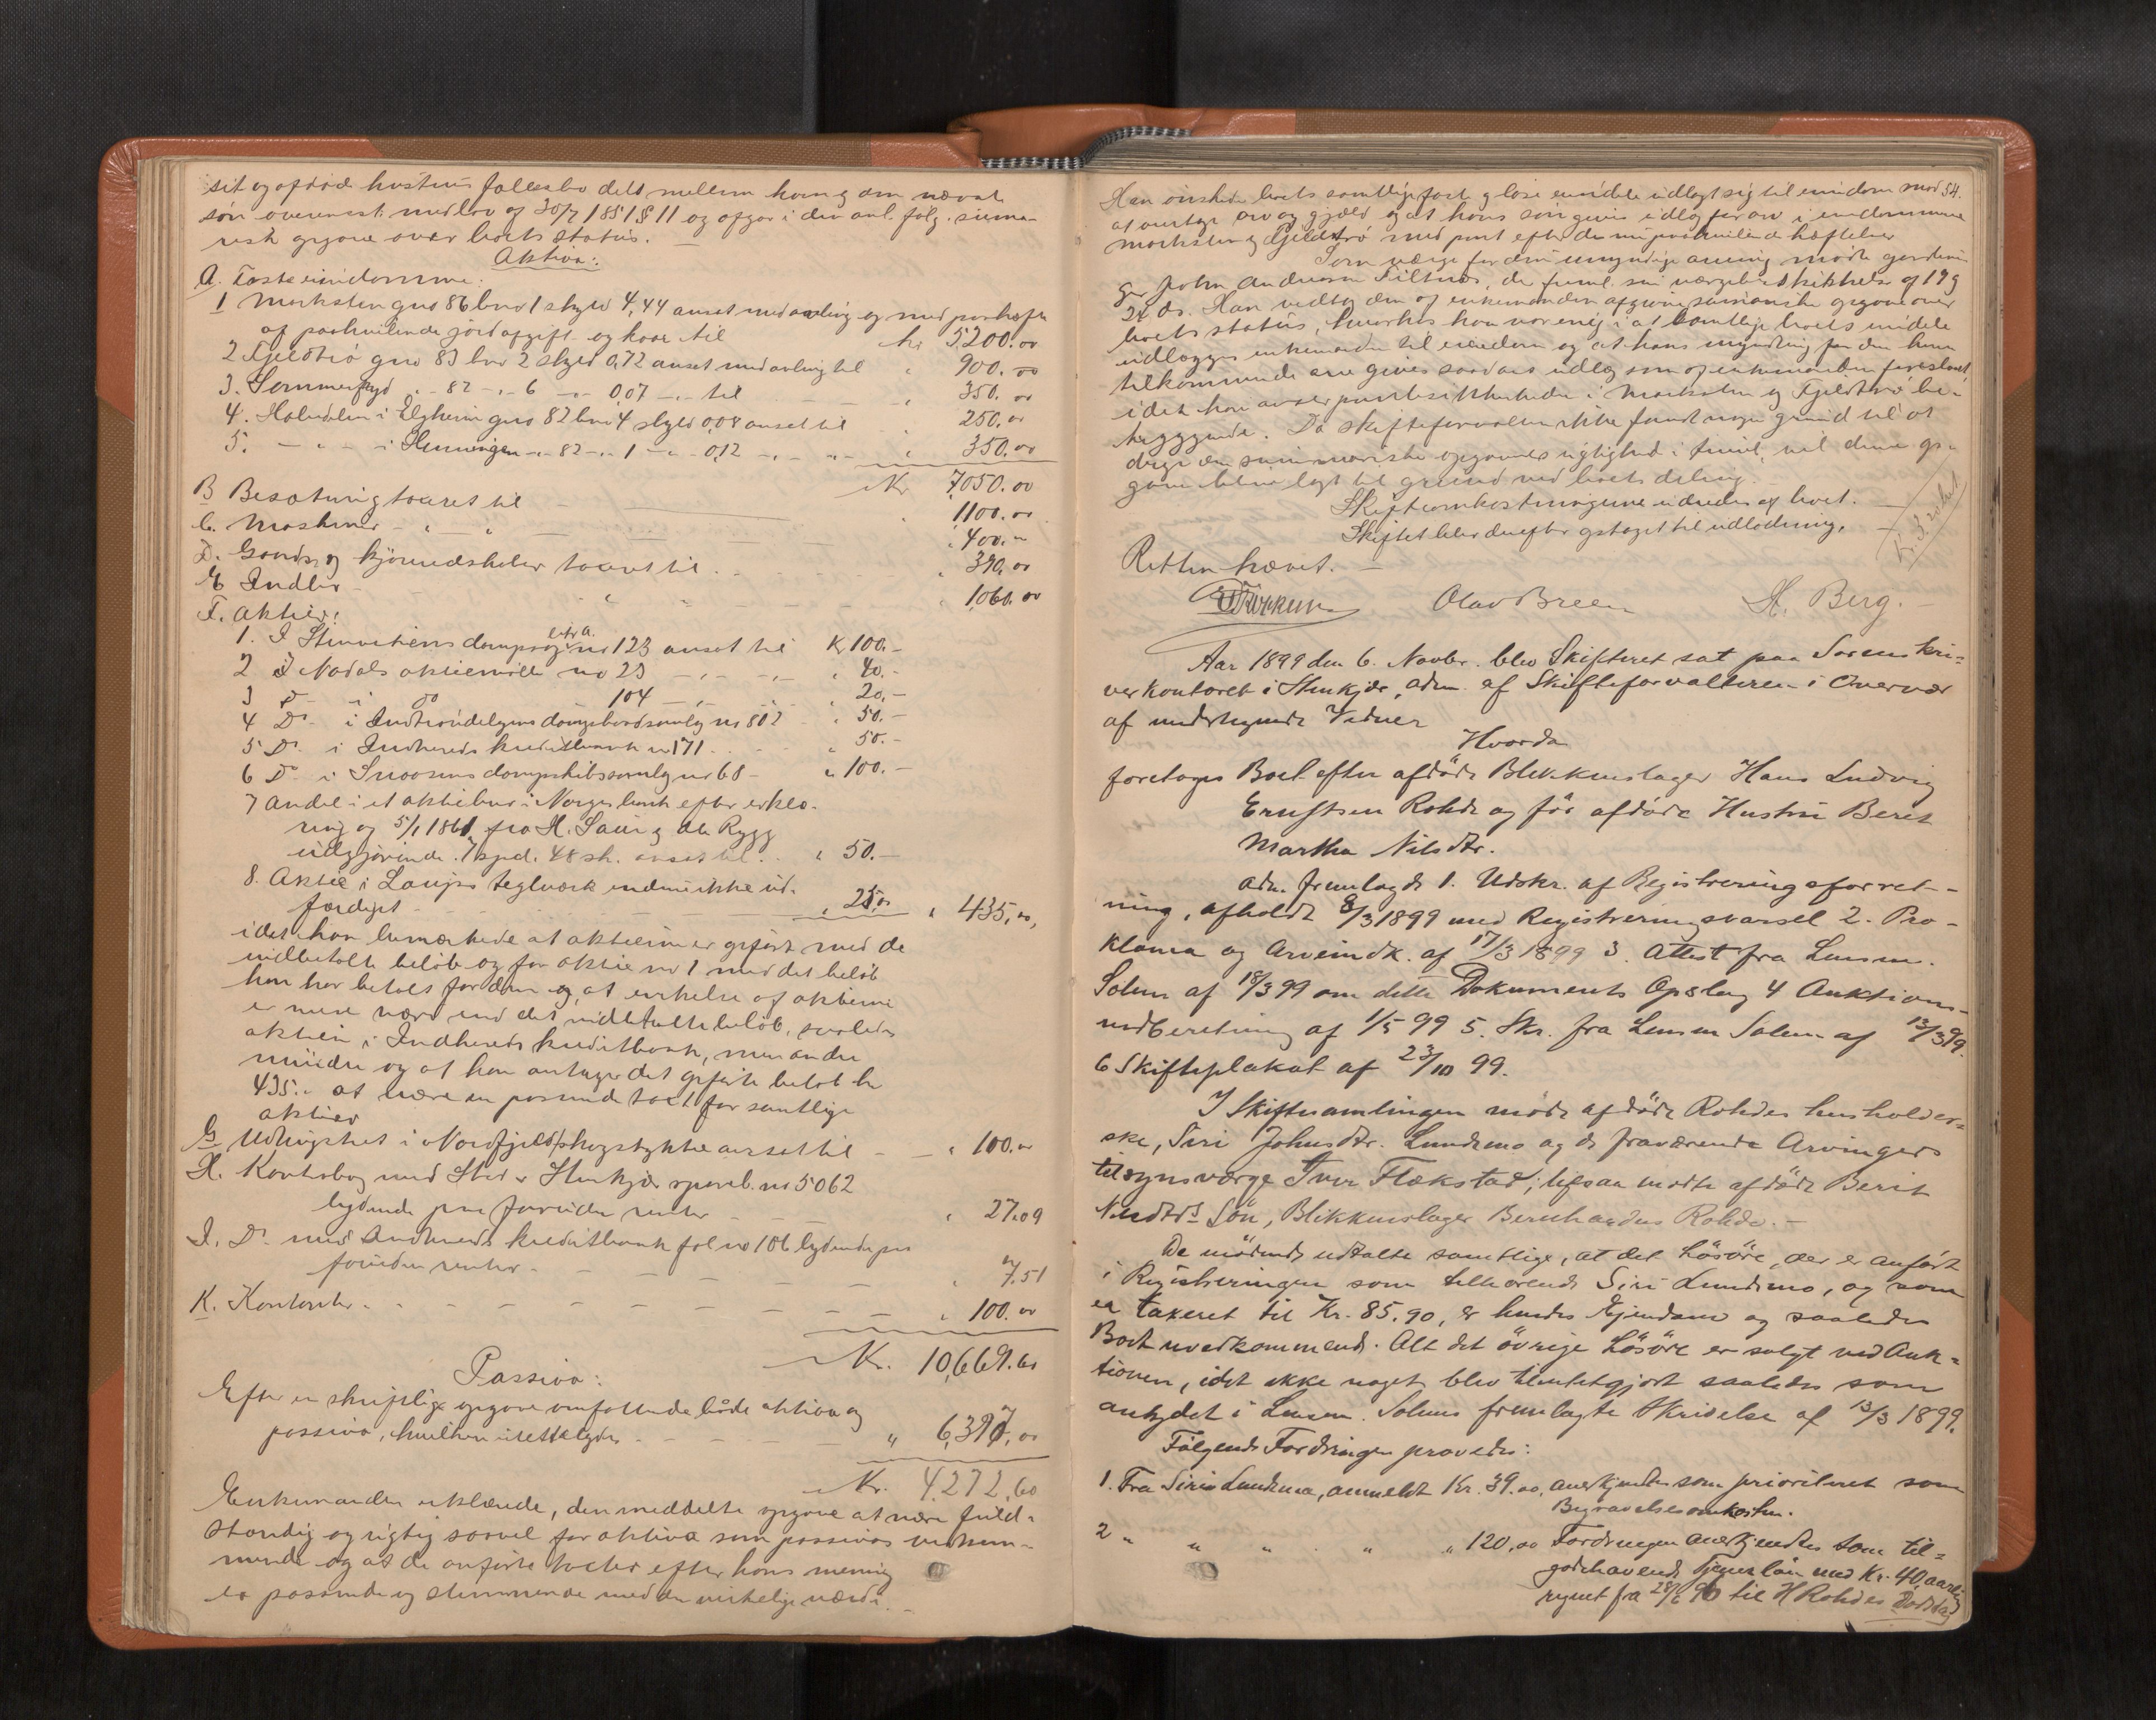 sit og afdøde hustrus fællesbo delt mellem ham og den nævnte
søn overenst. med lov af 30/7 1851 § 11 og afgav i den anl. følg. summa-
risk opgave over boets status.
Aktiva:
A. Faste eiendomme:
1 Marksten gno 86 bno 1 skyld 4,44 anset med avling og med
af paahvilende jordafgift og kaar til kr 5200.00
2 Fjeldtrø gno 83 bno 2 skyld 0,72 anset med avling til " 900.00
3. " 82 " 6 " 0,07 " til " 350.00
4. Halvdelen i Elgheim gno 82 bno 4 skyld 0,08 anset til " 250.00
5. " " i Hemningen " 82 " 1 " 0,12 " " " 350.00
Kr 7050.00
B Besætning taxeret til 1100.00
C. Maskiner " " " 400.00
D. Gaards og kjøreredskaber taxeret til " 390.00
E Indbo " " " 1060.00
F. Aktier:
1. I dampsag no 123 anset til Kr 100.-
2 I Nadals aktiemølle no 23 " " " 40.-
3 Do i do 104 " " 20,-
4 Do i Indtrøndelagens dampskibsselsk no 802 " 50.-
5 Do i Indherreds kreditbank no 171 " 50.-
6 Do i Snaasens dampskibsselsk no 68 - " 100.-
7 Andel i et aktiebrev i Norges bank efter erklæ-
ring af 5/1 1861 fra H. Saur og Ole Rygg
udgjørende 7 spd. 48 sk. anset til " 50.-
8. Aktie i teglværk endnu ikke ud-
færdiget " 25,00 " 435,00,
idet han bemærkede at aktierne er opført med de
indbetalte beløb og for aktie no 1 med det beløb
han har betalt for den og at enkelte af aktierne
er mere værd end det indbetalte beløb, saaledes
aktien i Indherreds kreditbank, men andre
mindre og at han antager det opførte beløb kr
435.- at være en passende taxt for samtlige
aktier
G Udhugsret i Nordfjeldskogstykke anset til - - " 100.00
H. Kontrabog med Sted. Stenkjær spareb. no 5062
lydende paa foruden renter " 27.09
I. Do med Indherreds kreditbank fol no 106 lydende paa
foruden renter - - - - " 7.51
K. Kontanter - - - - - " 100.00
Kr. 10,669.60
Passiva:
Efter en skriftlig opgave omfattende både aktiva og
passiva, hvilken - - - " 6,397,00
Kr. 4272,60
Enkemanden erklærede, den meddelte opgave at være fuld-
stændig og rigtig saavel for aktiva som passivas vedkom-
mende og at de anførte taxter efter hans mening
er passende og stemmende med den virkelige værdi. -
54.
Han ønskede boets samtlige fast og løse eiendele udlagt sig til eiendom mod
at overtage arv og gjæld og at hans søn gives udlæg for arv i eiendommene
Marksten og Fjeldtrø med pant efter de nu paahvilende hæftelser
Som værge for den umyndige arving mødte gaardbru-
ger John Andreas Tiltnes, der freml. sin værgebeskikkelse af 19 g
24 ds. Han vedtog den af enkemanden afgivne summariske opgave over
boets status, hvorhos han var enig i at samtlige boets eiendele
udlægges enkemanden til eiendom og at hans myndling for den ham
tilkommende arv gives saadant udlæg som af enkemanden foreslaaet,
idet han anser pantesikkerheden i Marksten og Fjeldtrø be-
tryggende. Da skifteforvalteren ikke fandt nogen grund til at
drage den summariske opgaves rigtighed i tvivl, vil denne op-
gave blive lagt til grund ved boets deling.
Skifteomkostningerne udredes af boet.
Skiftet blev derefter optaget til udlodning.
Retten hævet. -
Olav Breen H. Berg.
Aar 1899 den 6. Novbr. blev Skifteret sat paa Sorenskri-
verkontoret i Stenkjær, adm. af Skifteforvalteren i Overvær
af undertegnede Vidner
Hvorda
foretoges Boet efter afdøde Blikkenslager Hans Ludvig
Ernstsen Rohde og før afdøde Hustru Beret
Martha Nilsdtr.
Adm. fremlagde 1. Udskr. af Registreringsforret-
ning, afholdt 8/3 1899 med Registreringsvarsel 2. Pro-
klama og Arveindk. af 17/3 1899 3. Attest fra Lensm.
Solem af 18/3 99 om dette Dokuments Opslag 4 Auktions-
indberetning af 1/5 99 5. Skr. fra Lensm Solem af 13/3 99.
6 Skifteplakat af 23/10 99.
I Skiftesamlingen mødte afdøde Rohdes husholder-
ske, Siri Johnsdtr. Lundemo og de fraværende Arvingers
tilsynsværge Iver Flækstad; ligesaa mødte afdøde Berit
Nilsdtrs Søn, Blikkenslager Bernhardus Rohde. -
De mødende udtalte samtlige, at det Løsøre, der er anført
i Registreringen som tilhørende Siri Lundemo, og som
er taxeret til Kr. 85.90, er hendes Ejendom og saaledes
Boet uvedkommende. Alt det øvrige Løsøre er solgt ved Auk-
tionen, idet ikke noget blev tilintetgjort saaledes som
antydet i Lensm. Solems fremlagte Skrivelse af 13/3 1899.
Følgende Fordringer prøvedes:
1. Fra Siri Lundemo, anmeldt Kr. 39.00, anerkjendtes som prioriteret som
Begravelsesomkostn.
2 " " " " " 120,00 Fordringen anerkjendtes som til-
godehavende Tjenerløn med Kr. 40 aarlig
regnet fra 28/6 96 til H Rohdes Dødsdag